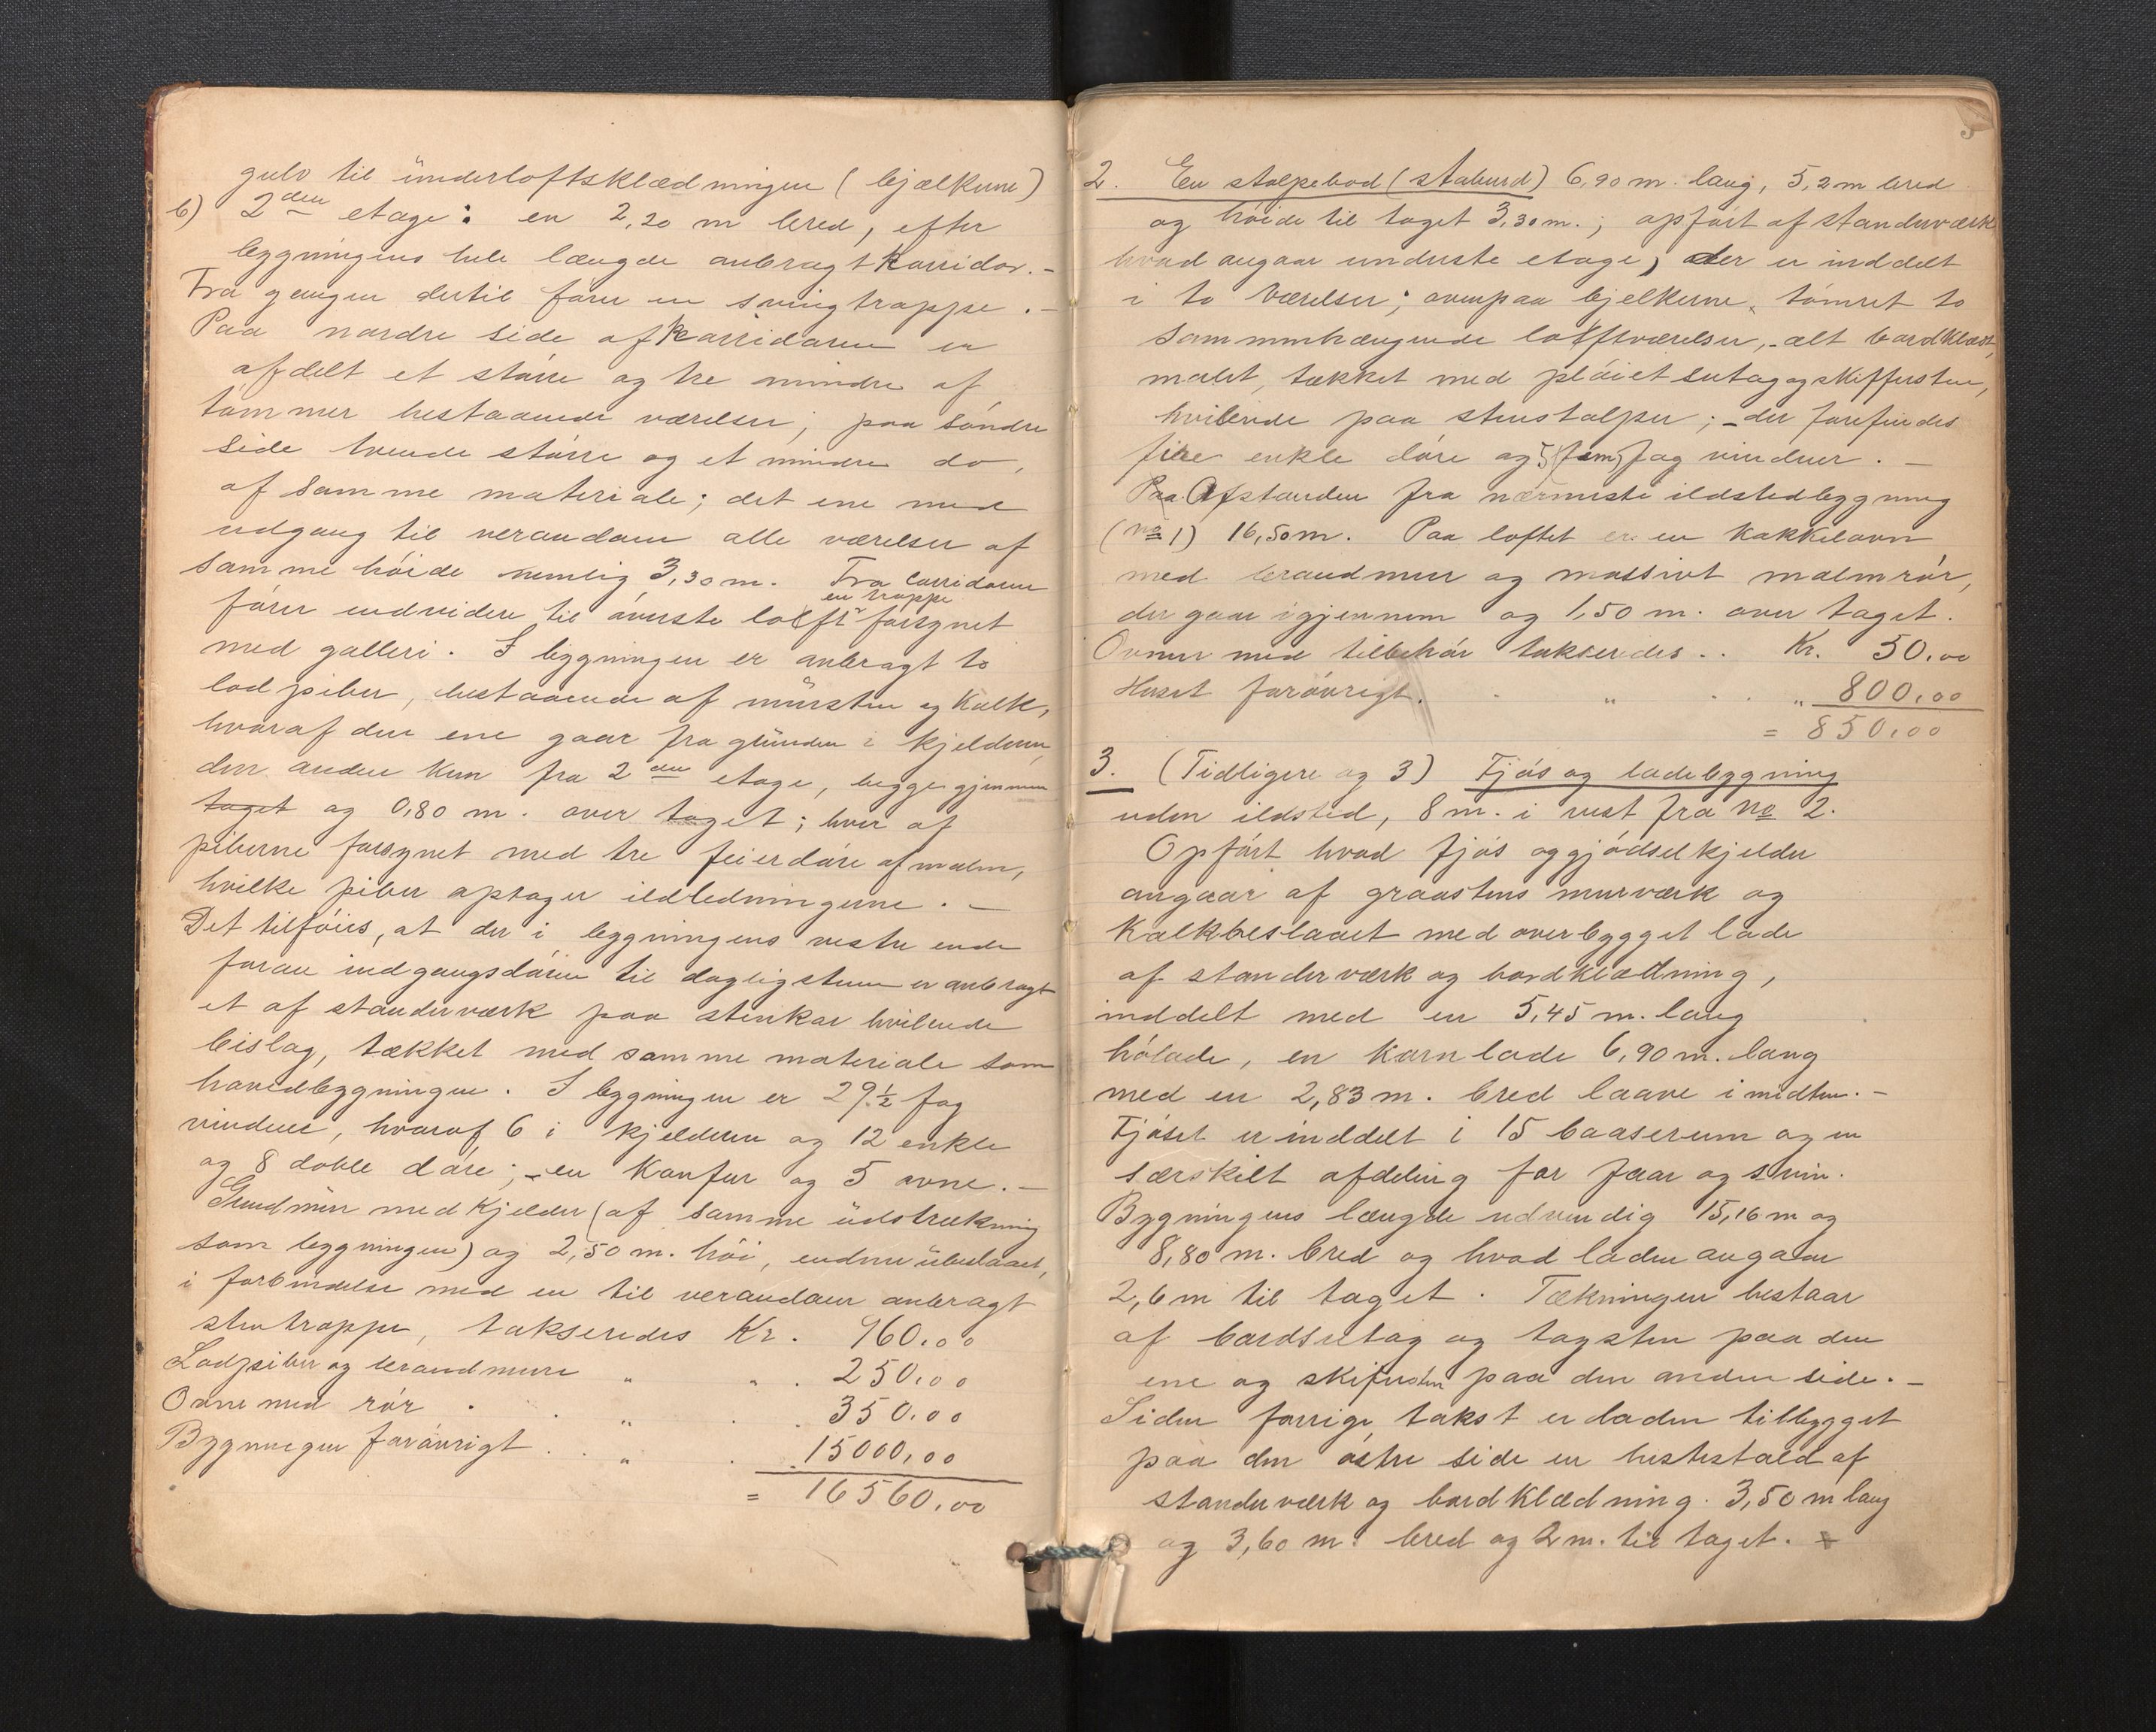 gulv til underloftsklædningen (bjælkerne)
b) 2den etage: en 2,20 m bred, efter
bygningens hele længde anbragt Korridor. –
Fra gangen dertil fører en svingtrappe. –
Paa nordre side af Korridoren er
afdelt et større og tre mindre af
tømmer bestaaende værelser; paa søndre
side tvende større og et mindre do,
af samme materiale; det ene med
udgang til verandaen alle værelser af
samme høide nemlig 3,30 m. Fra Corridoren
en trappe
fører endvidere til øverste loft forsynet
med galleri. I bygningen er anbragt to
lodpiber, bestaaende af mursten og Kalk,
hvoraf den ene gaar fra grunden i kjelderen,
den anden kun fra 2den etage, begge gjennem
taget og 0,80 m. over taget; hver af
piberne forsynet med tre feierdøre af malm,
hvilke piber optager ildledningerne. –
Det tilføies, at der i bygningens vestre ende
foran indgangsdøren til dagligstuen er anbragt
et af standerværk paa stenkar hvilende
bislag, tækket med samme materiale som
hovedbygningen. I bygningen er 29½ fag
vinduer, hvoraf 6 i kjelderen og 12 enkle
og 8 doble døre; – en Komfur og 5 ovne. –
Grundmur med Kjelder (af samme udstrekning
som bygningen) og 2,50 m. høi, endnu ubeslaaet,
i forbindelse med en til verandaen anbragt
stentrappe, takseredes Kr. 960.00
Lodpiber og brandmure " " . 250.00
Ovne med rør . . " . . 350.00
Bygningen forøvrigt . . " . . 15000.00
= 16560.00
2. En stolpebod (stabburd) 6,90 m. lang, 5,2 m bred
og høide til taget 3,30 m.; opført af standerværk
hvad angaar underste etage, der er inddelt
i to Værelser; ovenpaa bjelkerne tømret to
sammenhængende loftsværelser, – alt bordklædt,
malet, tækket med pløiet sutag og skiffersten,
hvilende paa stenstolper; – der forefindes
fire enkle døre og 5 (fem) fag vinduer. –
Paa Afstanden fra nærmeste ildstedbygning
(No 1) 16,50 m. Paa loftet er en Kakkelovn
med brandmur og massivt malmrør,
der gaar igjennem og 1,50 m. over taget.
Ovnen med tilbehør takseredes . . Kr. 50.00
Huset forøvrigt . . " . . " 800.00
= 850.00
3. (Tidligere og 3) Fjøs og ladebygning
uden ildsted, 8 m. i vest fra No 2.
Opført hvad fjøs og gjødselkjelder
angaar af graastens murværk og
Kalkbeslaaet med overbygget lade
af standerværk og bordklædning,
inddelt med en 5,45 m. lang
hølade, en Kornlade 6,90 m. lang
med en 2,83 m. bred laave i midten. –
Fjøset er inddelt i 15 baaserum og en
særskilt afdeling for faar og svin.
Bygningens længde udvendig 15,16 m og
8,80 m. bred og hvad laden angaar
2,6 m til taget. Tækningen bestaar
af bordsutag og tagsten paa den
ene og skifersten paa den anden side. –
Siden forrige takst er laden tilbygget
paa den østre side en hestestald af
standerværk og bordklædning. 3,50 m lang
og 3,60 m. bred og 2 m. til taget.